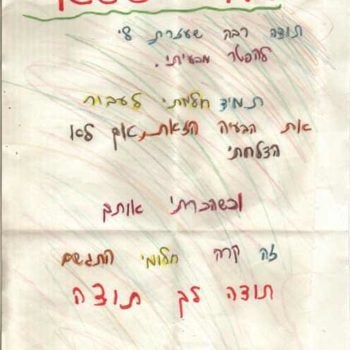 תודה רבה שעזרת לי
להפטר מבעיתי.
תמיד חלמתי לעבור
את הבעיה הזאת, אך לא
הצלחתי
וכשהכרתי אותך
זה קרה חלומי התגשם
תודה לך תודה